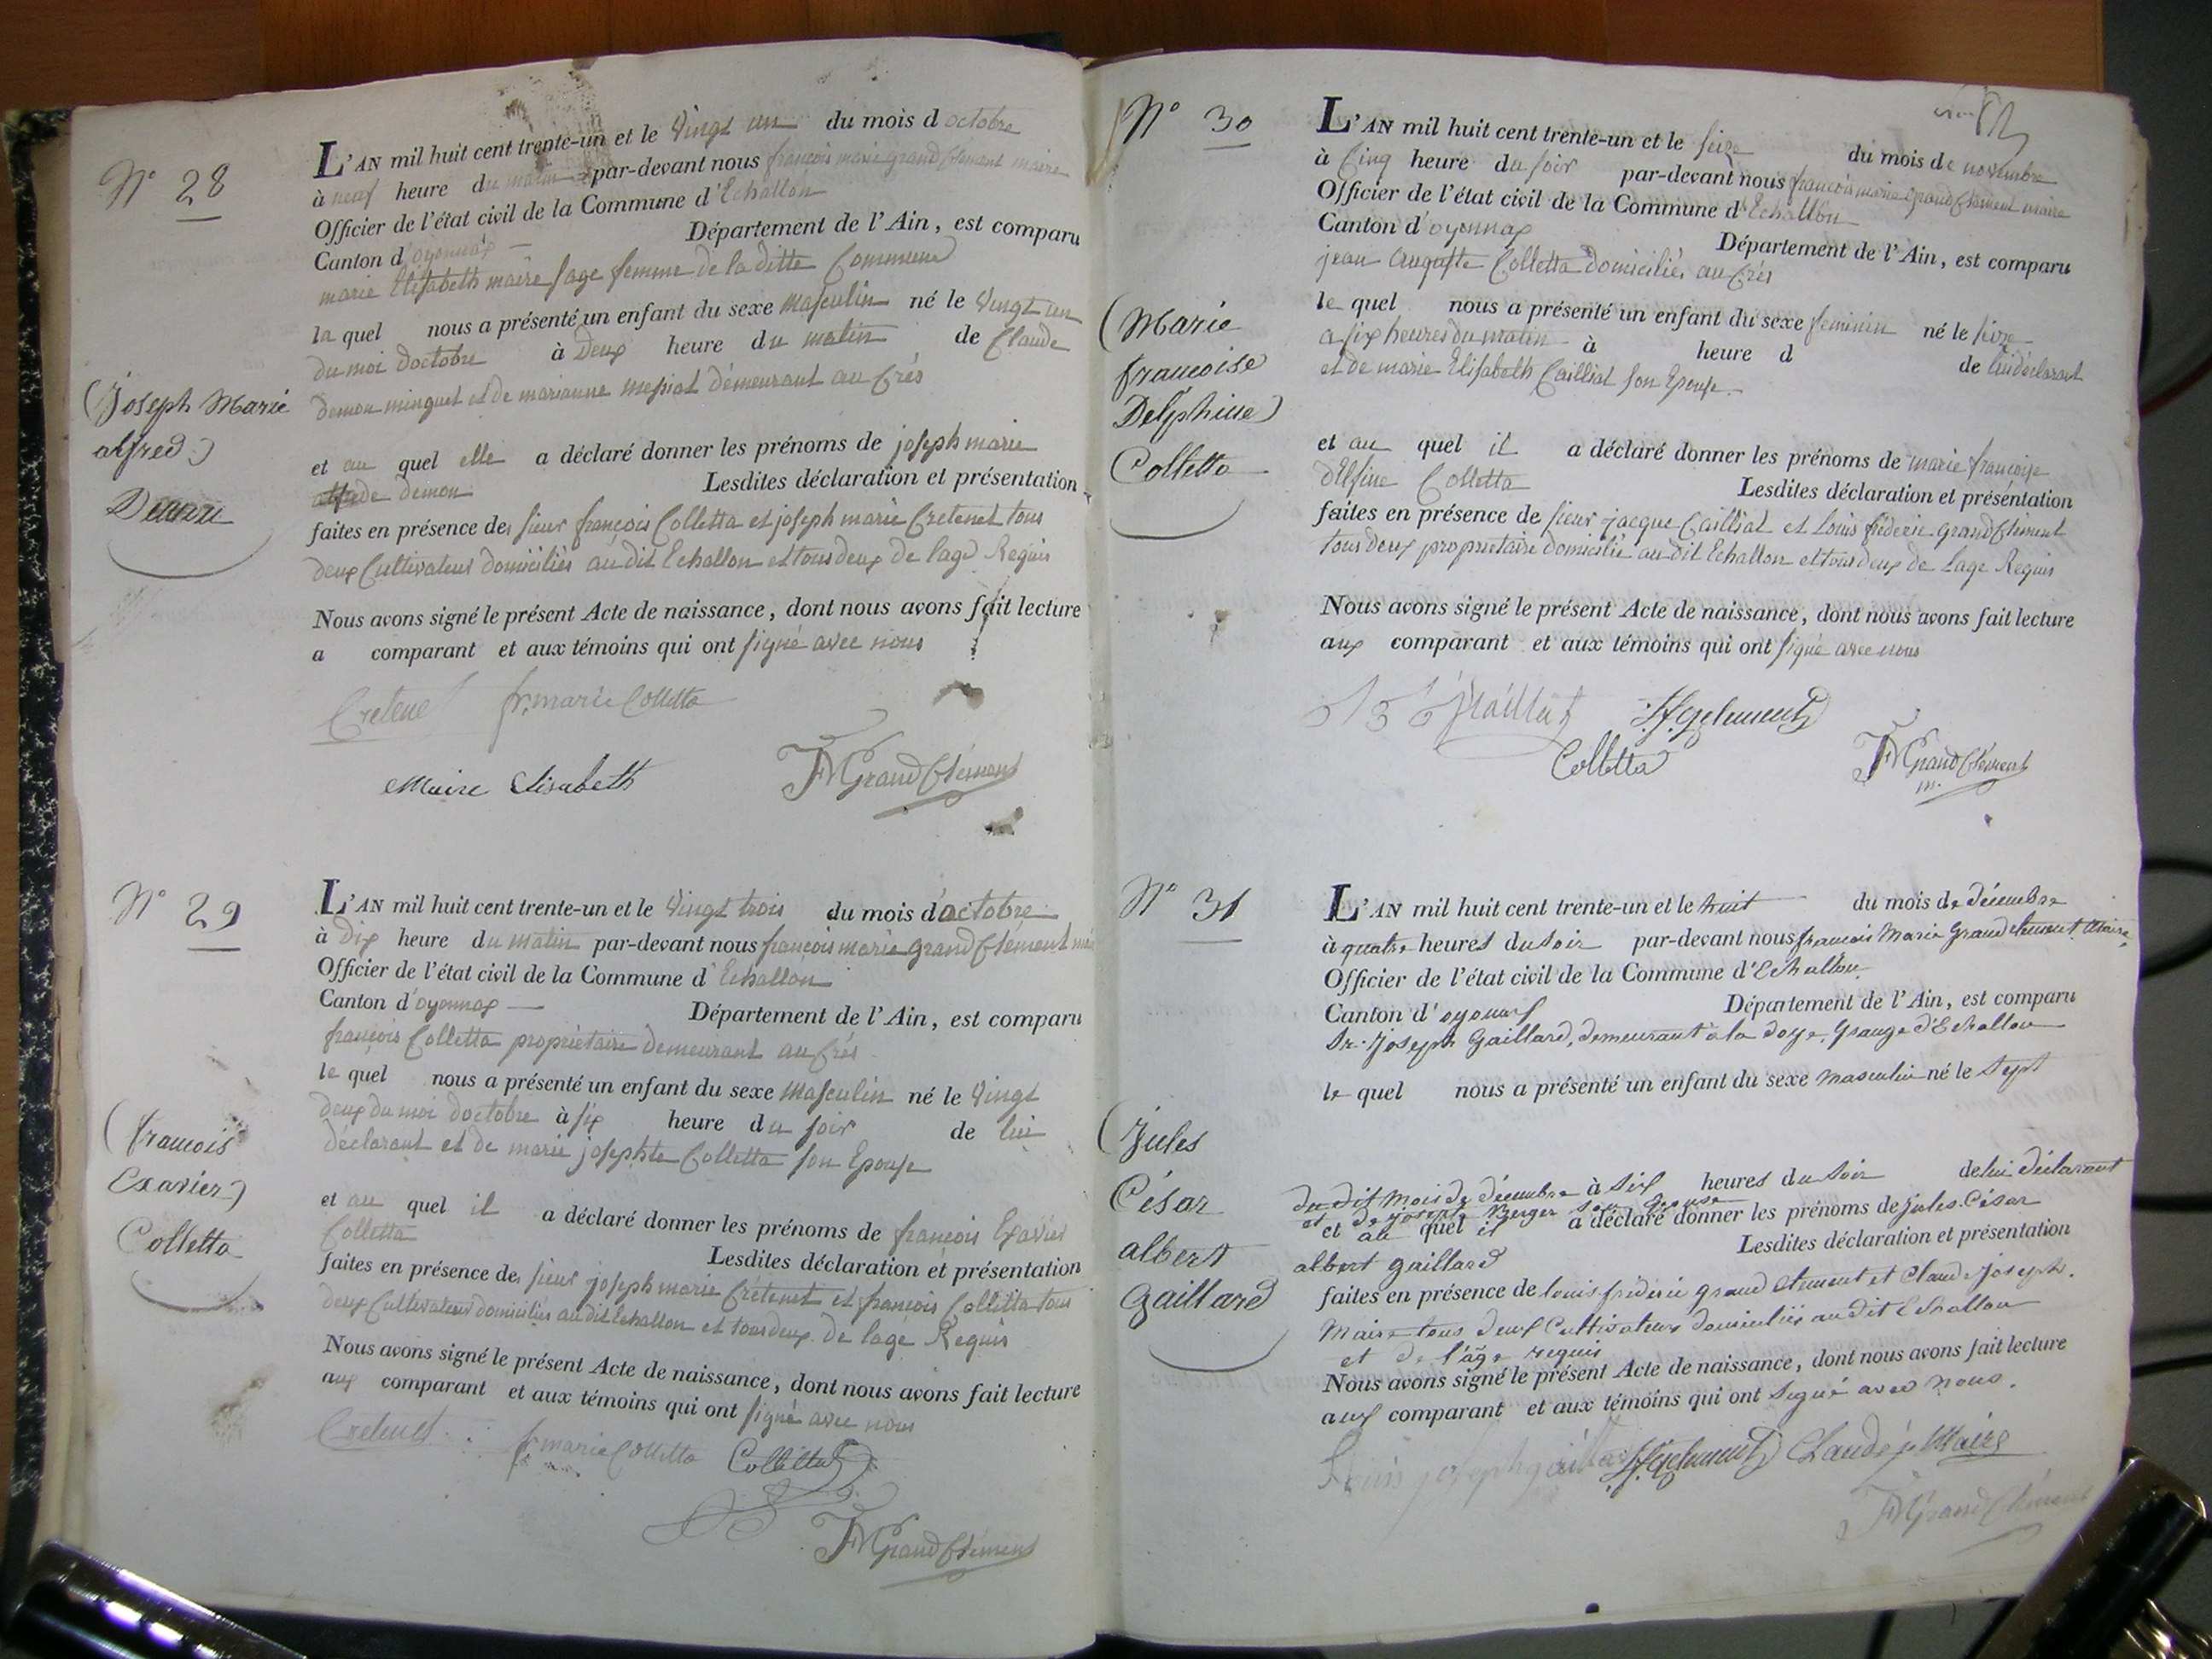 N° 28
L'AN mil huit cent trente-un et le Vingt un du mois d octobre
à neuf heure du matin par-devant nous françois marie grand Clément maire
Officier de l'état civil de la Commune d'Echallon
Canton d'oyonnax Département de l'Ain, est comparu
marie Elisabeth maire sage femme de la ditte Commune
la quel nous a présenté un enfant du sexe masculin né le Vingt un
du moi doctobre à Deux heure du matin de Claude
demon minguet et de marianne messiat demeurant au Crés
(Joseph Marie
alfred)
et au quel elle a déclaré donner les prénoms de joseph marie
demon Lesdites déclaration et présentation
faites en présence des sieur françois Colletta et joseph marie Cretenet tous
deux Cultivateur domiciliés au dit Echallon et tous deux de lage Requis
Nous avons signé le présent Acte de naissance, dont nous avons fait lecture
a comparant et aux témoins qui ont signé avec nous
Cretenet fr. marie Colletta
Maire Elisabeth FM Grand Clément
N° 29
L'AN mil huit cent trente-un et le Vingt trois du mois d'octobre
à Dix heure du matin par-devant nous françois marie grand Clément
Officier de l'état civil de la Commune d'Echallon
Canton d'oyonnax Département de l'Ain, est comparu
françois Colletta propriétaire demeurant au Crés
le quel nous a présenté un enfant du sexe masculin né le Vingt
deux du moi doctobre à six heure du soir de lui
déclarant et de marie josephte Colletta son Epouse
(francois
Exavier)
Colletta
et au quel il a déclaré donner les prénoms de francois Exavier
Colletta Lesdites déclaration et présentation
faites en présence des sieur joseph marie Crétenet et françois Colletta tous
deux Cultivateur domiciliés au dit Echallon et tous deux de lage Requis
Nous avons signé le présent Acte de naissance, dont nous avons fait lecture
aux comparant et aux témoins qui ont signé avec nous
Cretenet fr marie Colletta Colletta
FM Grand Clément
N° 30
L'AN mil huit cent trente-un et le seize du mois de novembre
à Cinq heure du soir par-devant nous francois marie grand Clément maire
Officier de l'état civil de la Commune d'Echallon
Canton d'oyonnax Département de l'Ain, est comparu
jean Auguste Colletta domiciliés au Crés
le quel nous a présenté un enfant du sexe feminin né le seize
a six heures du matin à heure d de lui déclarant
et de marie Elisabeth Cailliat son Epouse
(Marie
francoise
Delphine)
Colletta
et au quel il a déclaré donner les prénoms de marie francoise
delfine Colletta Lesdites déclaration et présentation
faites en présence de sieur jacque Cailliat et Louis fréderic grand Clément
tous deux propriétaire domicilié au dit Echallon et tous deux de Lage Requis
Nous avons signé le présent Acte de naissance, dont nous avons fait lecture
aux comparant et aux témoins qui ont signé avec nous
Colletta FM Grand Clément
m.
N° 31
L'AN mil huit cent trente-un et le huit du mois de décembre
à quatre heures du soir par-devant nous francois Marie Grand clement Maire
Officier de l'état civil de la Commune d'Echallon
Canton d'oyonnax Département de l'Ain, est comparu
Sr. Joseph Gaillard, demeurant à la doye, Grange d'Echallon
le quel nous a présenté un enfant du sexe masculin né le sept
du dit mois de décembre à six heures du soir de lui déclarant
et de Berger son Epouse
(Jules
César
albert
Gaillard
et au quel il a déclaré donner les prénoms de jules César
albert gaillard Lesdites déclaration et présentation
faites en présence de louis fréderic grand clement et Claude joseph
Maire tous deux Cultivateurs domiciliés au dit Echallon
et de l'âge requis
Nous avons signé le présent Acte de naissance, dont nous avons fait lecture
aux comparant et aux témoins qui ont signé avec nous.
joseph Claude j. Maire
FM Grand Clément